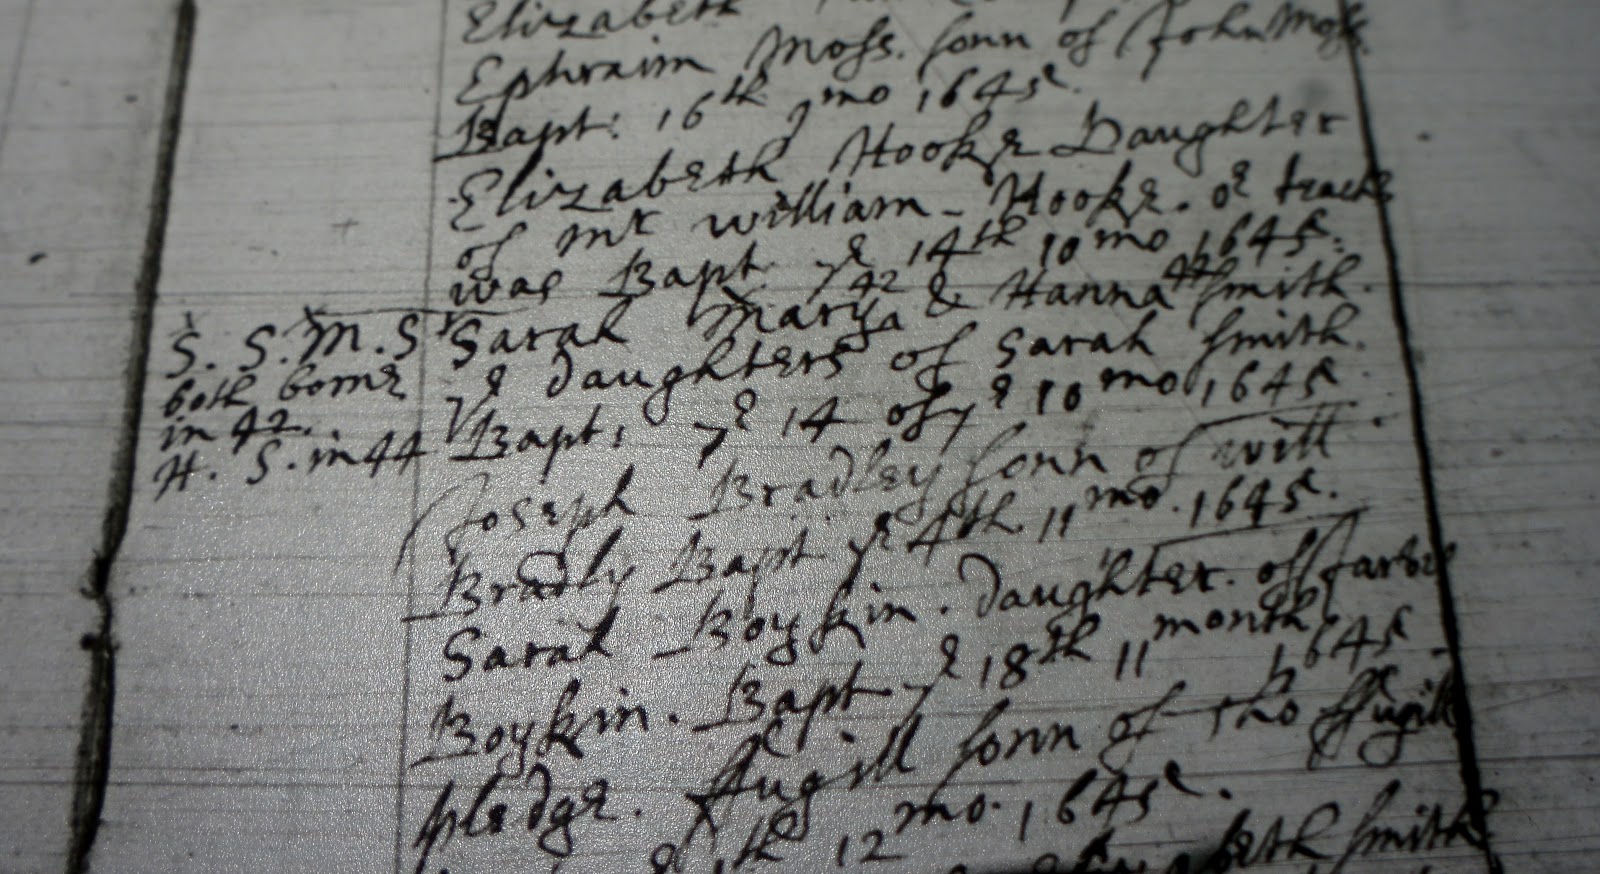 Elizabeth
Ephraim Moss. sonn of John Moss
Bapt: 16th mo 1645.
Elizabeth Hooke Daughter
of mr william Hooke. ye teache
was Bapt. ye 14th 10 mo 1645.
Sarah Mary 42 & Hanna 44 Smith.
ye daughters of Sarah Smith.
Bapt: ye 14 of ye 10 mo 1645
S. S. M. S
both borne
in 42.
H. S. in 44
Joseph Bradley sonn of will
Bradly Bapt ye 4th 11 mo. 1645.
Sarah Boykin. daughter. of Jarvic
Boykin. Bapt ye 18th 11 month. 1645
pledge. ffugill sonn of Tho ffugill
th 12 mo. 1645.
beth Smith